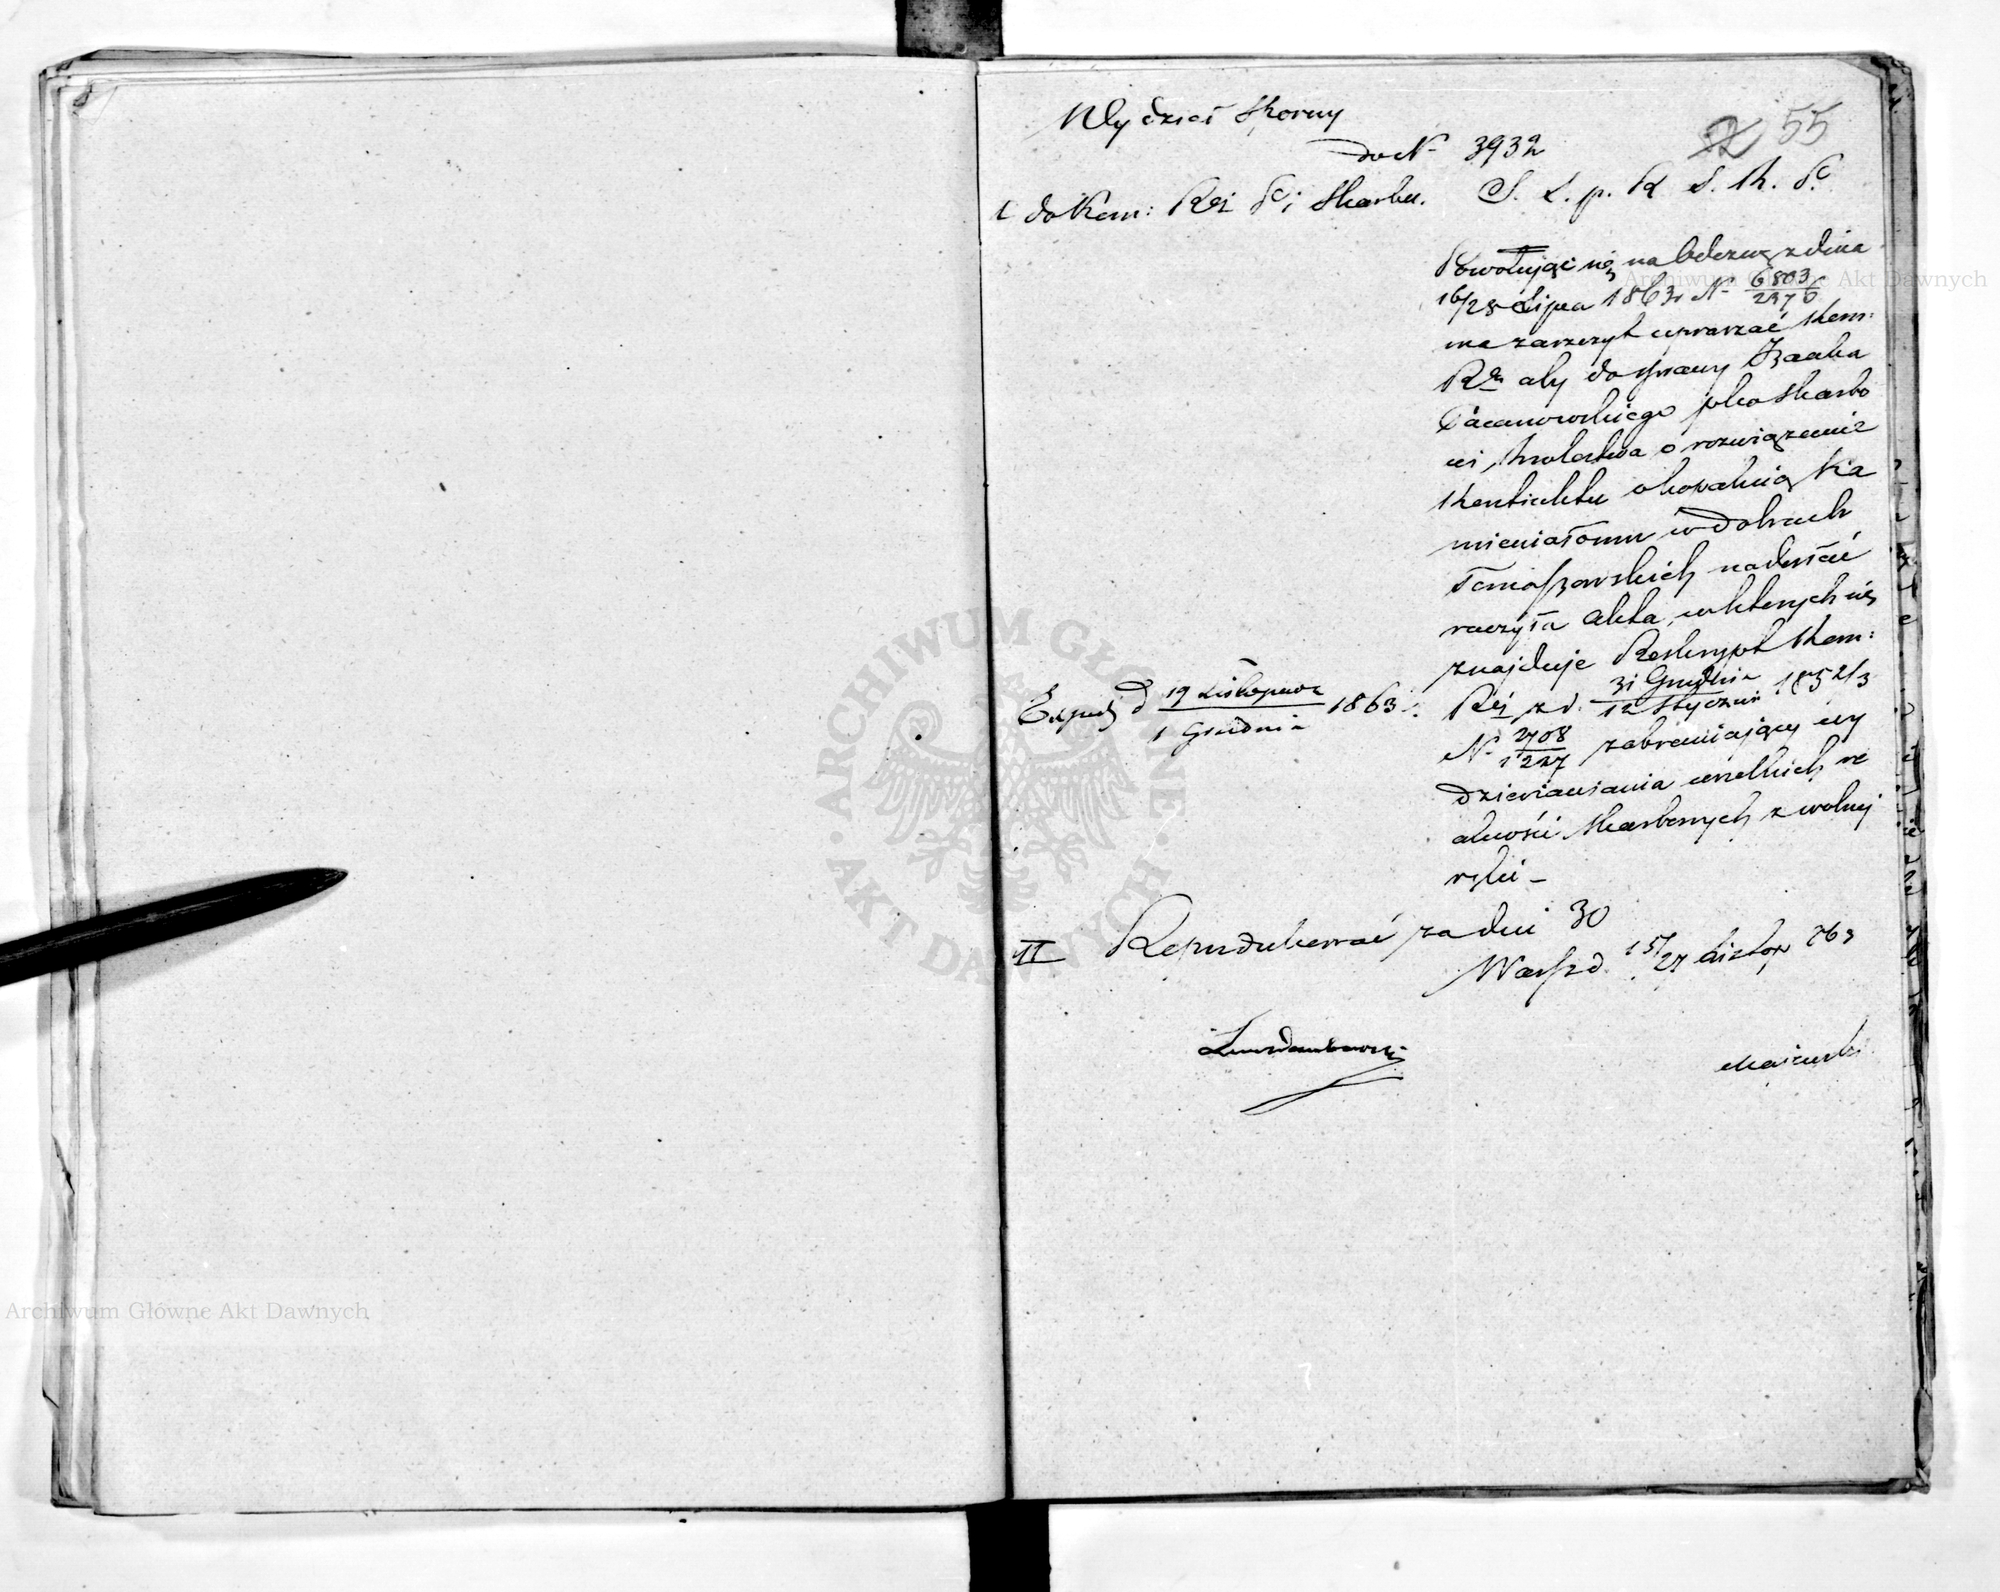 Wydział Sporny
do N 3932
55
I do Kom: Rz: P. i Skarbu. S. L. p. K. S. K. P.
Powołując się na Odezwę z dnia
16/28 Lipca 1863 r N 6803/2376
ma zaszczyt upraszać Kom:
Rz aby do sprawy Izaaka
Pacanowskiego plko Skarbo
wi Królestwa o rozwiązanie
Kontraktu o kopalnią Ka
mieniołomu w dobrach
Tomaszowskich nadesłać
raczyła Akta w których się
znajduje Reskrypt Kom:
Rz: z d. 31 Grudnia/12 Stycznia 1852/3
N 2708/1227 zabraniający wy
dzierżawiania wszelkich re
alności Skarbowych z wolnej
ręki –
Exped d 19 Listopada/1 Grudnia 1863 r.
II Reprodukować za dni 30
Warsz d. 15/27 Listop 863
Archiwum Główne Akt Dawnych
ARCHIWUM GŁÓWNE · AKT DAWNYCH ·
Archiwum Główne Akt Dawnych